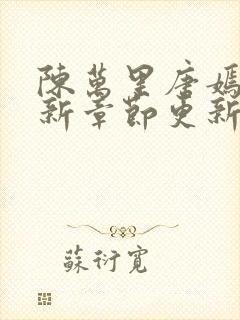 陳萬里唐嫣
新章節更新
蘇衍寬